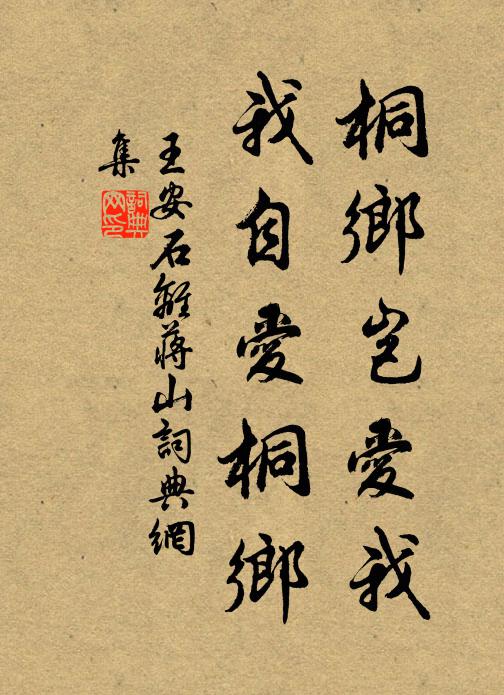 桐鄉豈愛我
我自愛桐鄉
王安石離蔣山詞典網
集
詞典网印